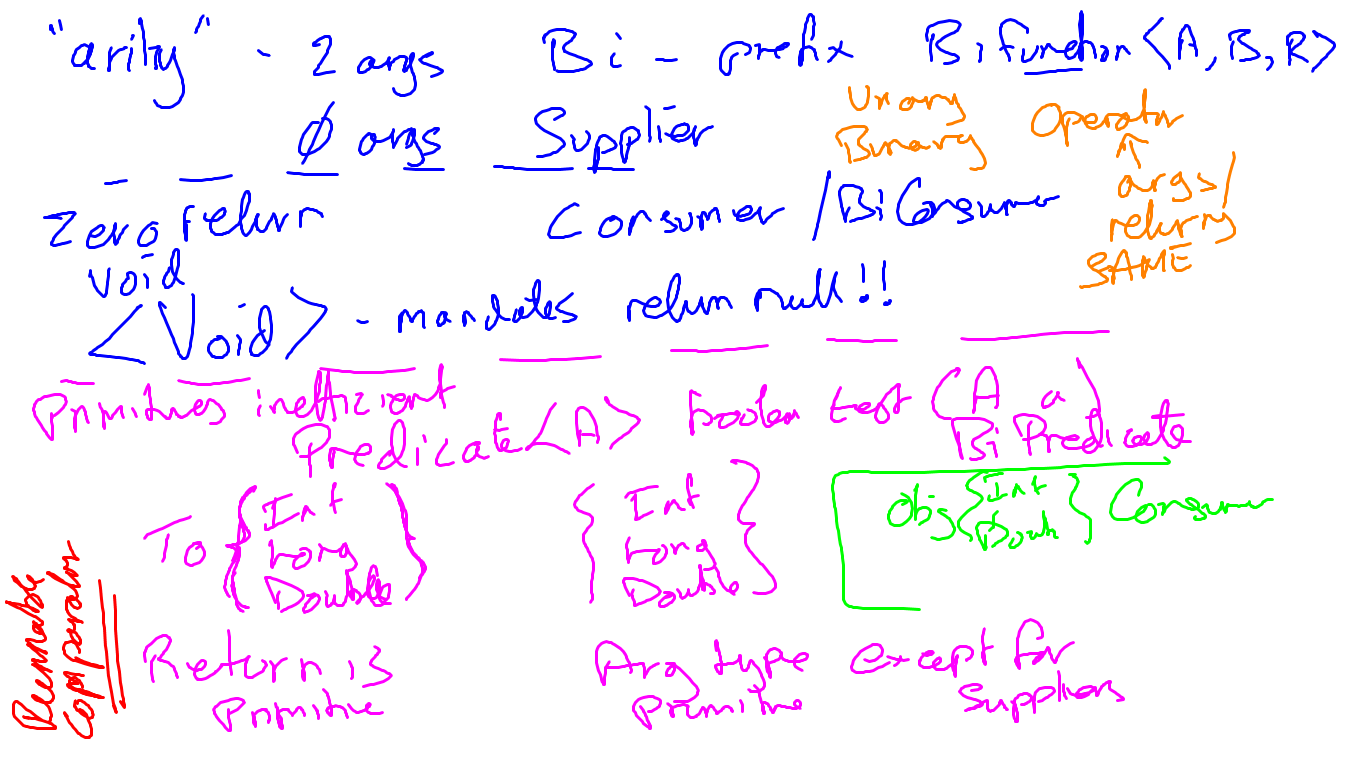 "arity" - 2 args Bi - prefix Bifunction<A, B, R>
Ø args Supplier
Unary
Binary
Operator
↑
args/
returns
SAME
Zero return Consumer / BiConsumer
void
<Void> - mandates return null!!
Primitives inefficient
Predicate<A> boolean test (A a)
BiPredicate
To { Int
Long
Double }
{ Int
Long
Double }
Obj { Int
Doub } Consumer
Return is
Primitive
Arg type except for
primitive Suppliers
Runnable
Comparator